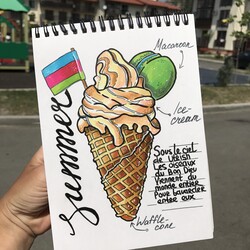 Macaroon
Summer
Ice-
cream
Sous le ciel
de
Les oiseaux
du Bon Dieu
Viennent du
monde entier
Pour bavarder
entre eux
Waffle-
cone